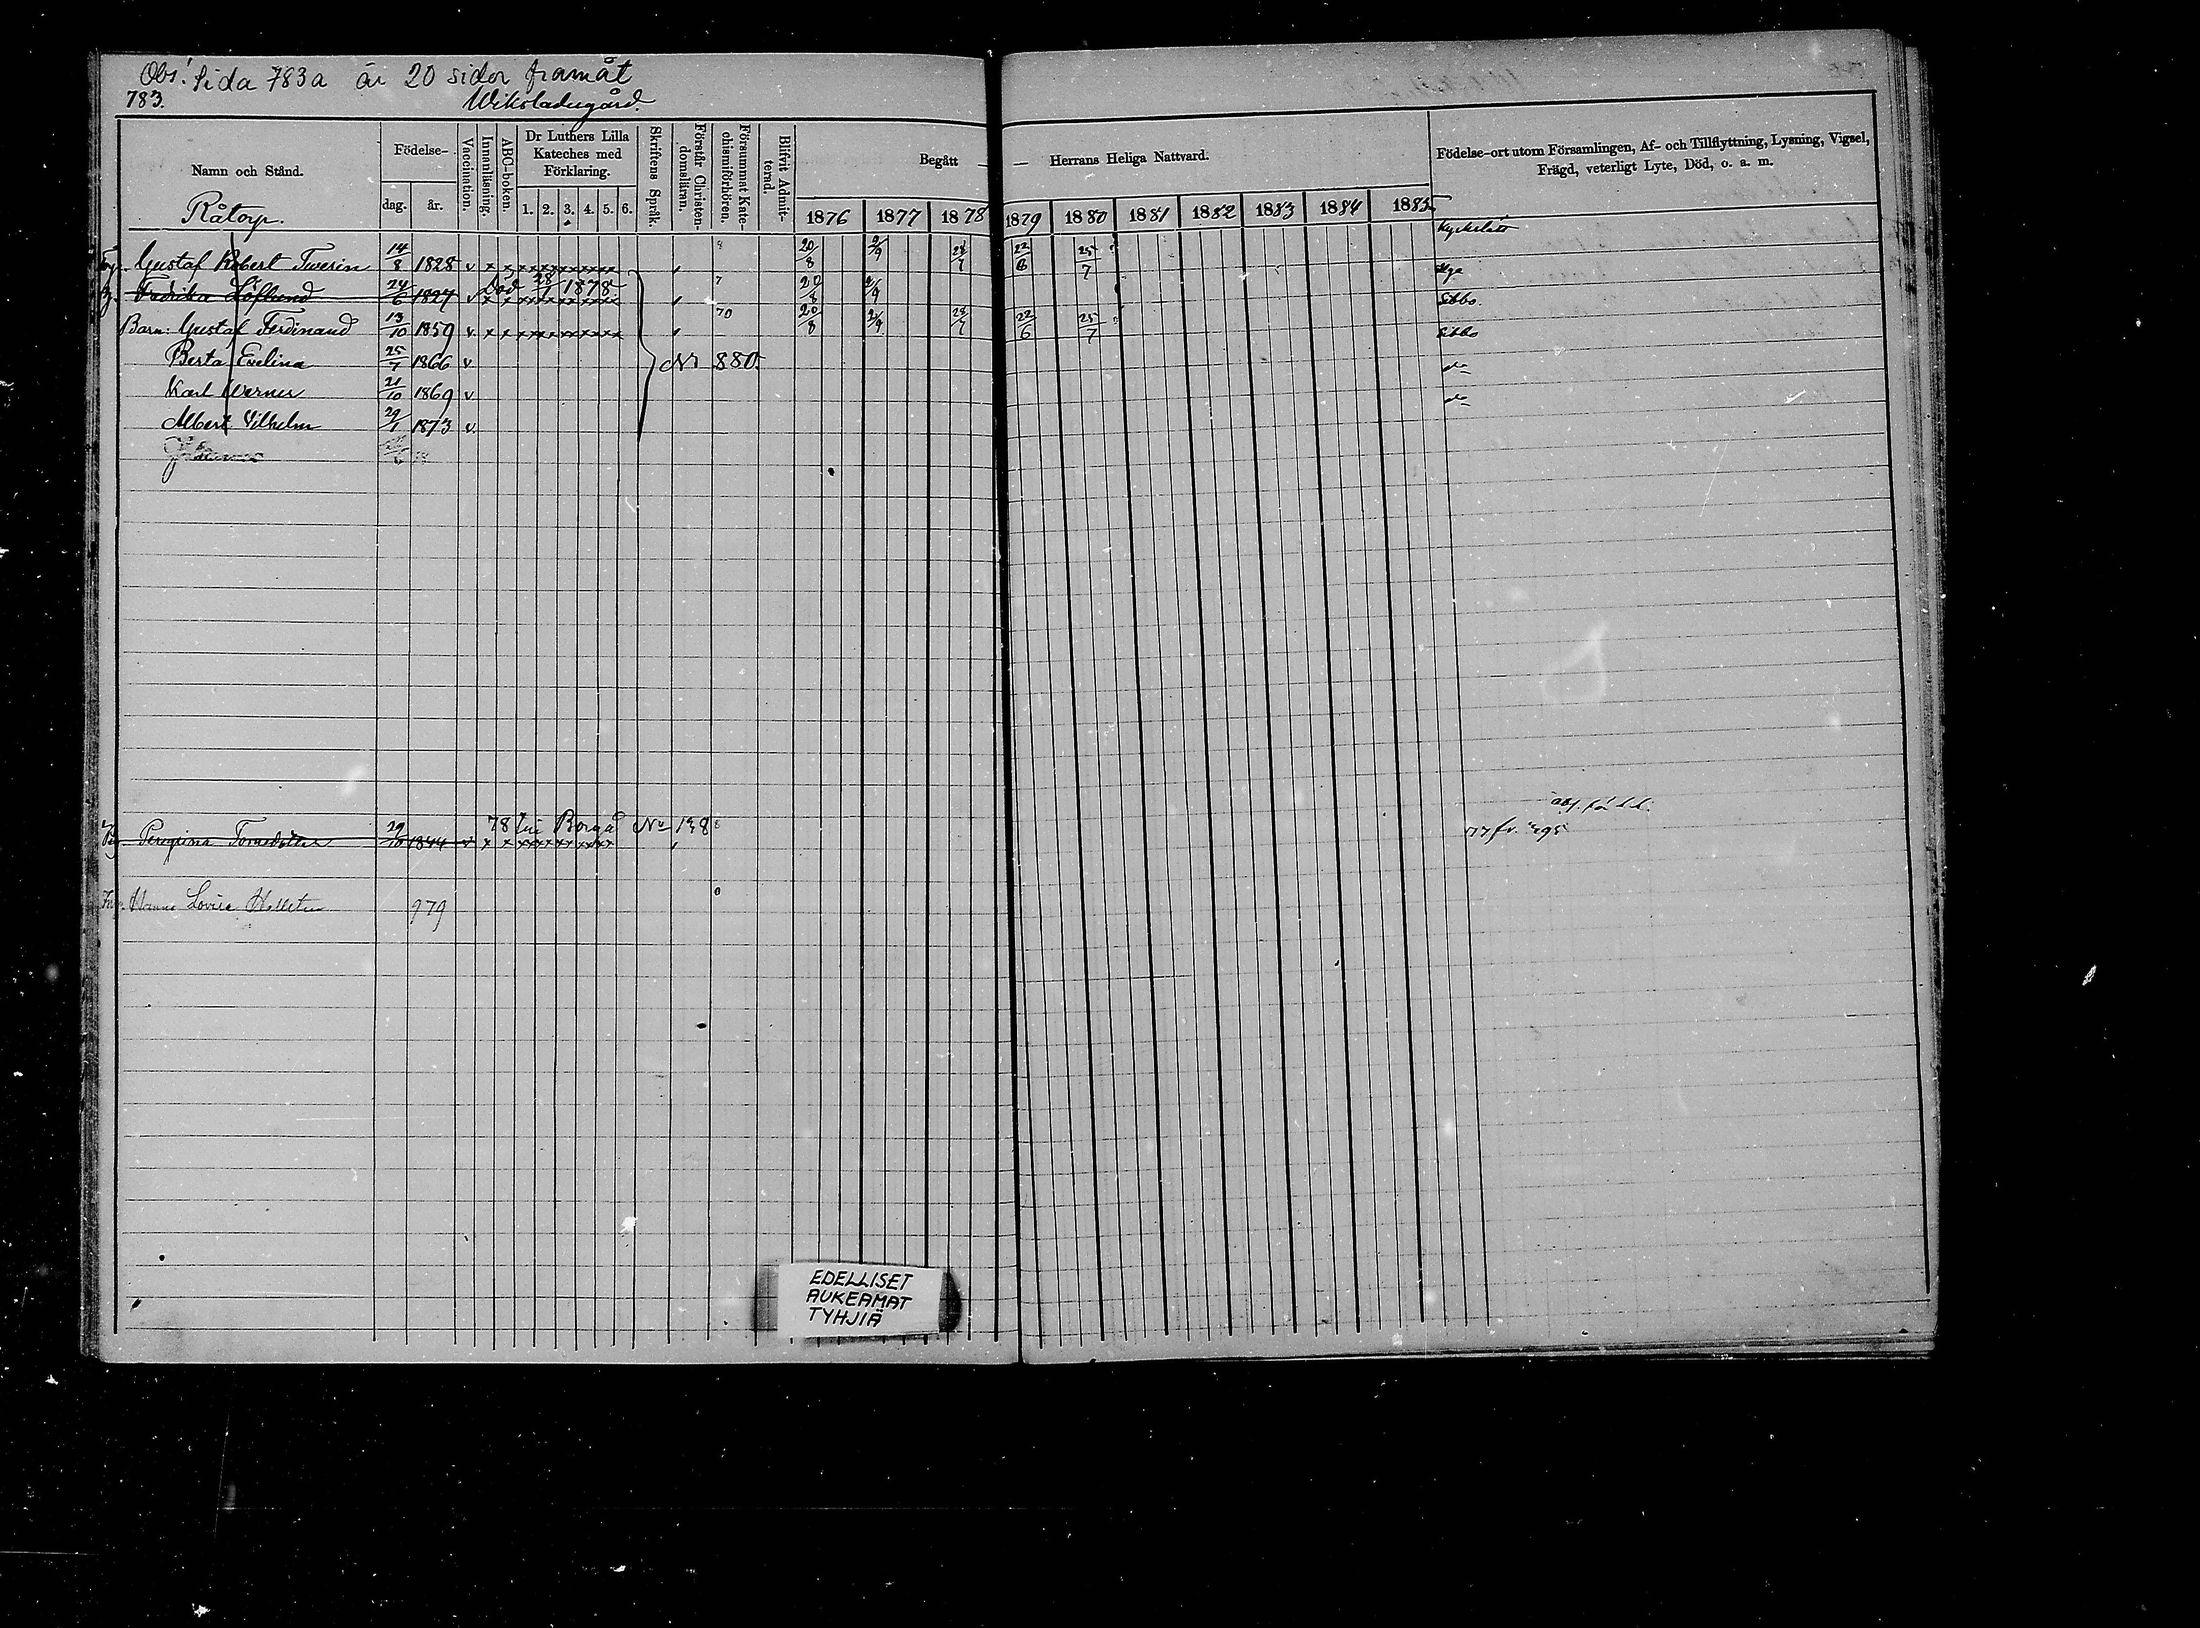 Obs! Sida 783a är 20 sidor framåt
783.
Wiksladugård
Namn och Stånd.
Födelse-
dag. år.
Vaccination.
Innanläsning.
ABC-boken.
Dr Luthers Lilla Kateches med Förklaring.
1. 2. 3. 4. 5. 6.
Skriftens Språk.
Förstår Christendomsläran.
Försummat Katechismiförhören.
Blifvit Admitterad.
Begått — — Herrans Heliga Nattvard.
1876 1877 1878 1879 1880 1881 1882 1883 1884 1885
Födelse-ort utom Församlingen, Af- och Tillflyttning, Lysning, Vigsel,
Frägd, veterligt Lyte, Död, o. a. m.
Råtorp.
Kyrkslätt
Gustaf Robert Twerin 14/8 1828 v x x xxxxxxxxxx 8 20/8 2/9 28/7 22/6 25/7
Fredrika Löflund 24/6 1827 v Död 28/1 1878 7 20/8 2/9
Sibbo.
Barn: Gustaf Ferdinand 13/10 1859 v x x xxxxxxxxxx 70 20/8 2/9 28/7 22/6 25/7 Sibbo
Berta Evelina 25/7 1866 v № 880. do
Karl Werner 21/10 1869 v do
Albert Vilhelm 29/1 1873 v.
29/10 1844 v 78 till Borgå No 138 8
Lovisa 979 0
EDELLISET
AUKEAMAT
TYHJIÄ